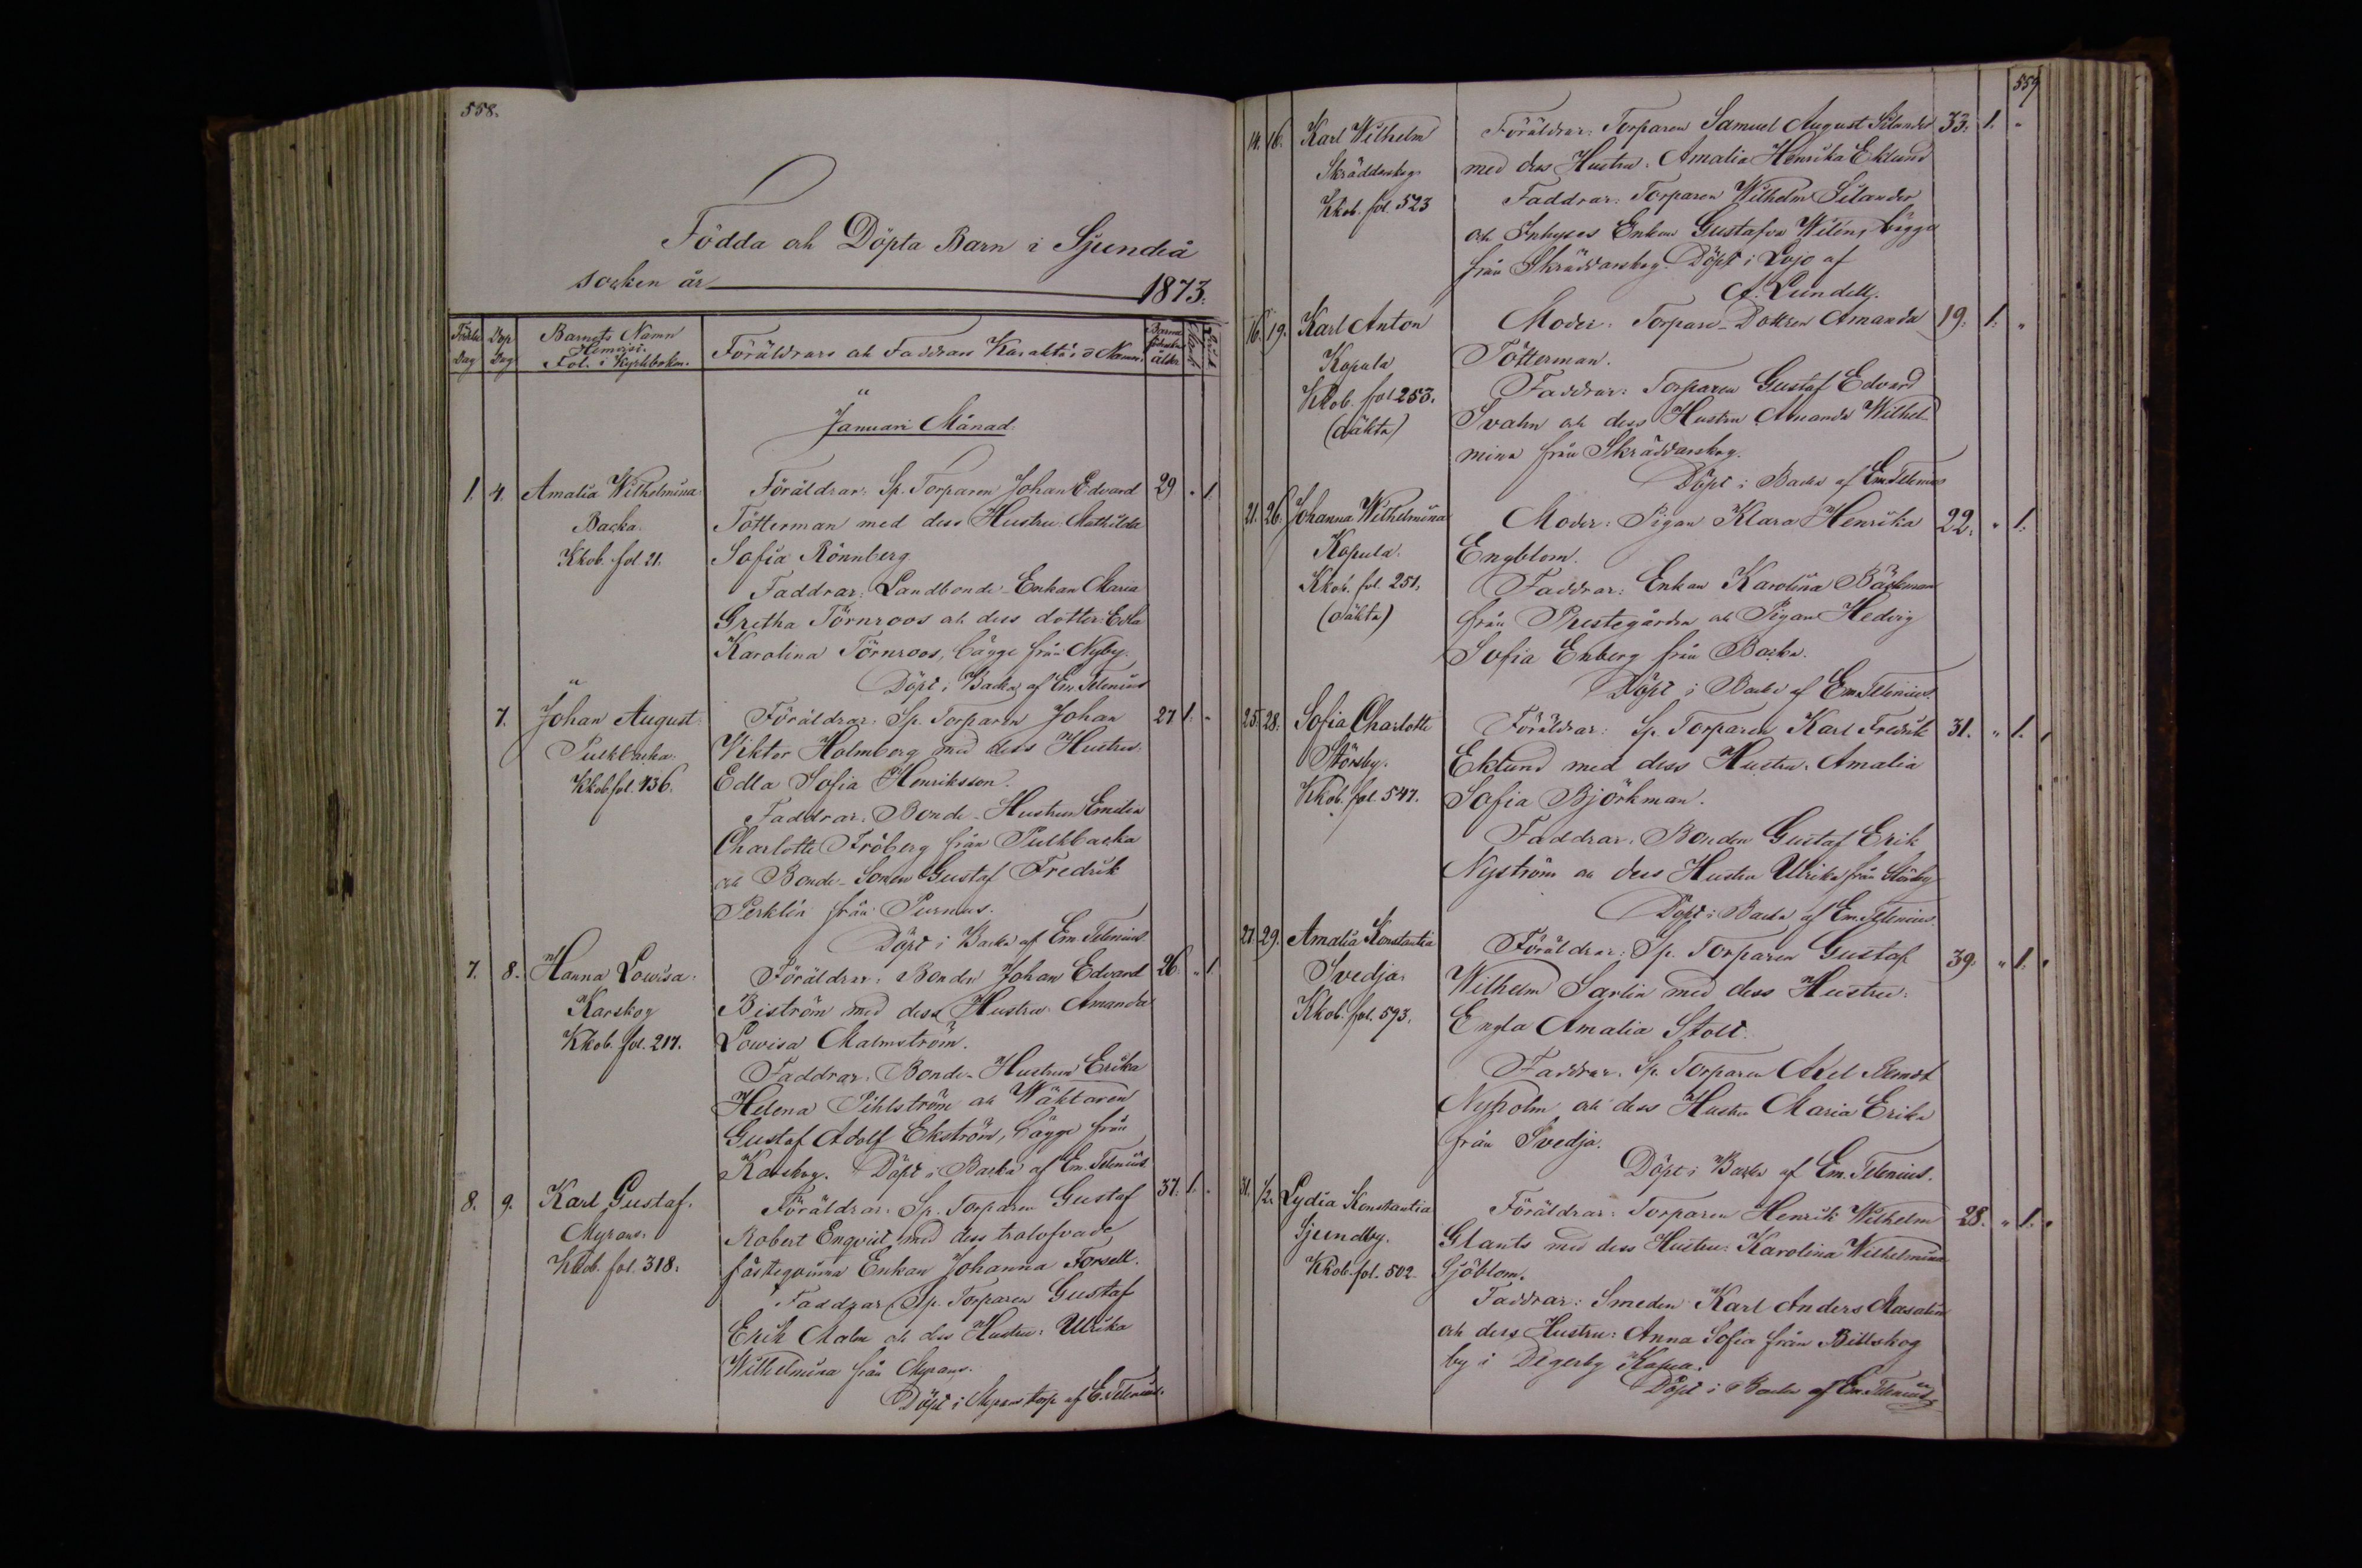 558.
Födda och Döpta Barn i Sjundeå
socken år 1873.
Födelse Dag
Dop Dag
Barnets Namn
Hemvist.
Fol. i Kyrkboken.
Föräldrars och Faddrars Karaktär o Namn.
ålder
Januari Månad.
1. 4. Amalia Wilhelmina.
Backa.
Kkob. fol. 21.
Föräldrar: Sp. Torparen Johan Edvard 29 " 1.
Tötterman med dess Hustru: Mathilda
Sofia Rönnberg
Faddrar: Landbonde-Enkan Maria
Gretha Törnroos och dess dotter: Edla
Karolina Törnroos, bägge från Nyby.
Döpt i Backa af Em. Telenius
" 7. Johan August.
Pulkbacka.
Kkob. fol. 436.
Föräldrar: Sp. Torparen Johan 27 1. "
Viktor Holmberg med dess Hustru:
Edla Sofia Henriksson.
Faddrar: Bonde-Hustrun Emilia
Charlotte Fröberg från Pulkbacka
och Bonde-Sonen Gustaf Fredrik
Perklén från Purnus.
Döpt i Backa af Em. Telenius
7. 8. Hanna Lowisa.
Karskog
Kkob. fol. 217.
Föräldrar: Bonden Johan Edvard 26. " 1.
Biström med dess Hustru: Amanda
Lowisa Malmström.
Faddrar: Bonde-Hustrun Erika
Helena Pihlström och Wäktaren
Gustaf Adolf Ekström, bägge från
Karskog. Döpt i Backa af Em. Telenius
8. 9. Karl Gustaf.
Myrans.
Kkob. fol. 318.
Föräldrar: Sp. Torparen Gustaf 37. 1. "
Robert Enqvist med dess trolofvade
fästeqvinna Enkan Johanna Forsell.
Faddrar: Sp. Torparen Gustaf
Erik Malm och dess Hustru: Ulrika
Wilhelmina från Myrans.
Döpt i Myrans torp af E. Telenius.
559
14. 16. Karl Wilhelm
Skräddarskog.
Kkob. fol. 523
Föräldrar: Torparen Samuel August Silander 33. 1. "
med dess Hustru: Amalia Henrika Eklund
Faddrar: Torparen Wilhelm Silander
och Inhyses Enkan Gustafva Wilén, bägge
från Skräddarskog. Döpt i Lojo af
A. Lundell.
16. 19. Karl Anton
Kopula
Kkob. fol 253.
(oäkta)
Moder: Torpare-Dottren Amanda 19. 1. "
Tötterman.
Faddrar: Torparen Gustaf Edvard
Svahn och dess Hustru Amanda Wilhel-
mina från Skräddarskog.
Döpt i Backa af Em. Telenius
21. 26. Johanna Wilhelmina
Kopula.
Kkob. fol. 251.
(oäkta)
Moder: Pigan Klara Henrika 22. " 1.
Engblom.
Faddrar: Enkan Karolina Bäckman
från Prestegården och Pigan Hedvig
Sofia Enberg från Backa.
Döpt i Backa af Em. Telenius.
25. 28. Sofia Charlotte
Störsby.
Kkob. fol. 547.
Föräldrar: Sp. Torparen Karl Fredrik 31. " 1.
Eklund med dess Hustru: Amalia
Sofia Björkman.
Faddrar: Bonden Gustaf Erik
Nyström och dess Hustru Ulrika från Störsby
Döpt i Backa af Em. Telenius.
27. 29. Amalia Konstantia
Svedja.
Kkob. fol. 593.
Föräldrar: Sp. Torparen Gustaf 39. " 1.
Wilhelm Sarlin med dess Hustru:
Engla Amalia Stolt.
Faddrar: Sp. Torparen Axel
Nyholm och dess Hustru Maria Erika
från Svedja.
Döpt i Backa af Em. Telenius.
31. 1/2. Lydia Konstantia
Sjundby.
Kkob. fol. 502.
Föräldrar: Torparen Henrik Wilhelm 28. " 1.
Glants med dess Hustru: Karolina Wilhelmina
Sjöblom.
Faddrar: Smeden Karl Anders Masalin
och dess Hustru: Anna Sofia från Billskog
by i Degerby Kapell.
Döpt i Backa af Em. Telenius